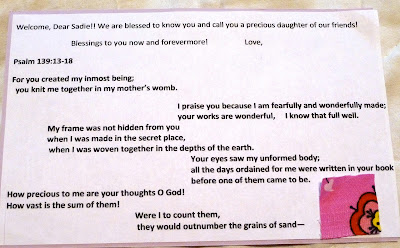 Welcome, Dear Sadie!! We are blessed to know you and call you a precious daughter of our friends!
Blessings to you now and forevermore! Love,
Psalm 139:13-18
For you created my inmost being;
you knit me together in my mother's womb.
I praise you because I am fearfully and wonderfully made;
your works are wonderful, I know that full well.
My frame was not hidden from you
when I was made in the secret place,
when I was woven together in the depths of the earth.
Your eyes saw my unformed body;
all the days ordained for me were written in your book
before one of them came to be.
How precious to me are your thoughts O God!
How vast is the sum of them!
Were I to count them,
they would outnumber the grains of sand—